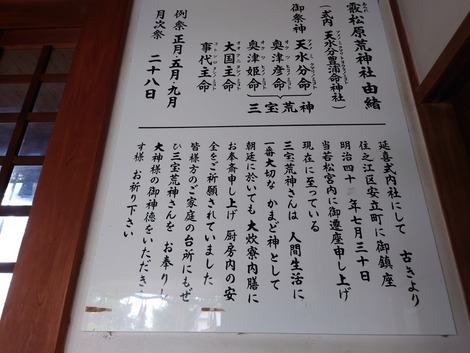 霰松原荒神社 由緒
あられ
(式内 天水分豊浦命神社)
御祭神 天水分命
奥津彦命
奥津姫命
三宝荒神
大国主命
事代主命
例祭 正月・五月・九月
月次祭 二十八日
延喜式内社にして 古きより
住之江区安立町に御鎮座
明治四十 年七月三十日
当若松宮内に御遷座申し上げ
現在に至っている
三宝荒神さんは 人間生活に
一番大切な かまど神として
朝廷に於いても 大炊寮内膳に
お奉斎申し上げ 厨房内の安
全をご祈願されていました
皆様方のご家庭の台所にもぜ
ひ三宝荒神さんを お奉りし
大神様の御神徳をいただきま
す様 お祈り下さい